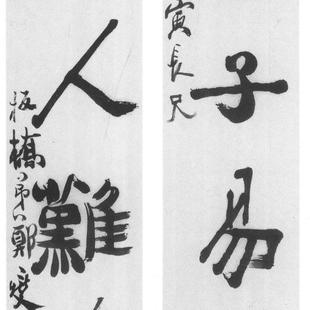 子易
寅長兄
人難
板橋弟鄭燮